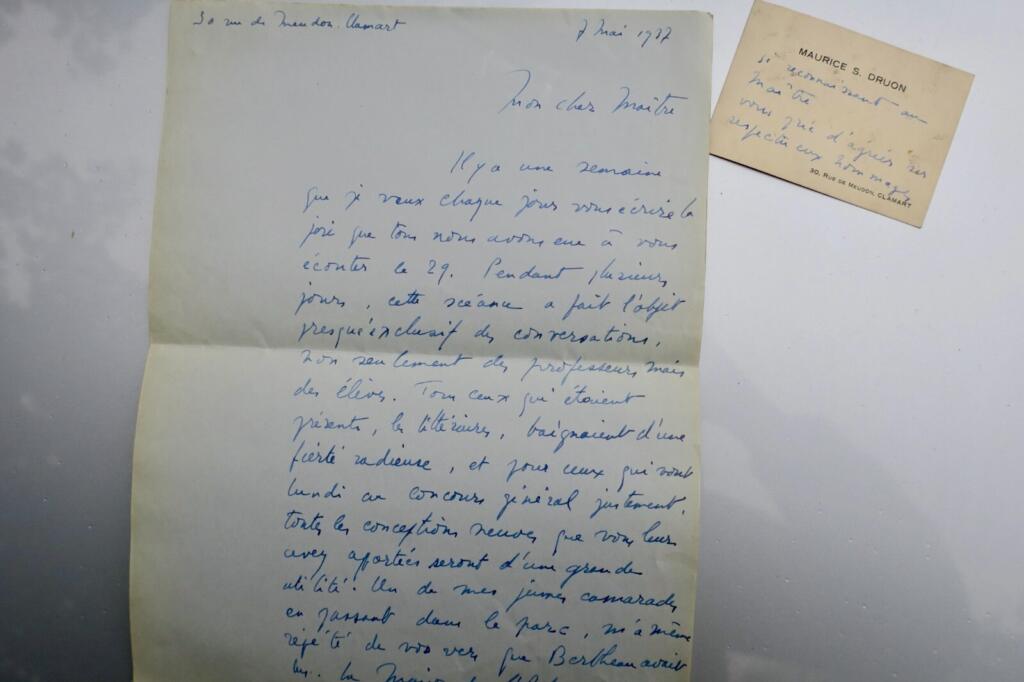 30 rue de Meudon. Clamart
7 Mai 1937
Mon cher Maître
Il y a une semaine
que je veux chaque jours vous écrire la
joie que tous nous avons eue à vous
écouter le 29. Pendant plusieurs
jours, cette séance a fait l'objet
presqu'exclusif des conversations,
non seulement des professeurs mais
des élèves. Tous ceux qui étaient
présents, les littéraires, baignaient d'une
fierté radieuse, et pour ceux qui vont
lundi au concours général justement,
toutes les conceptions neuves que vous leurs
avez apportées seront d'une grande
utilité. Un de mes jeunes camarades
en passant dans le parc, m'a même
répété de vos vers que Bertheau avait
lus. La
MAURICE S. DRUON
si reconnaissant au
Maître
vous prie d'agréer ses
respectueux hommages
30, RUE DE MEUDON, CLAMART